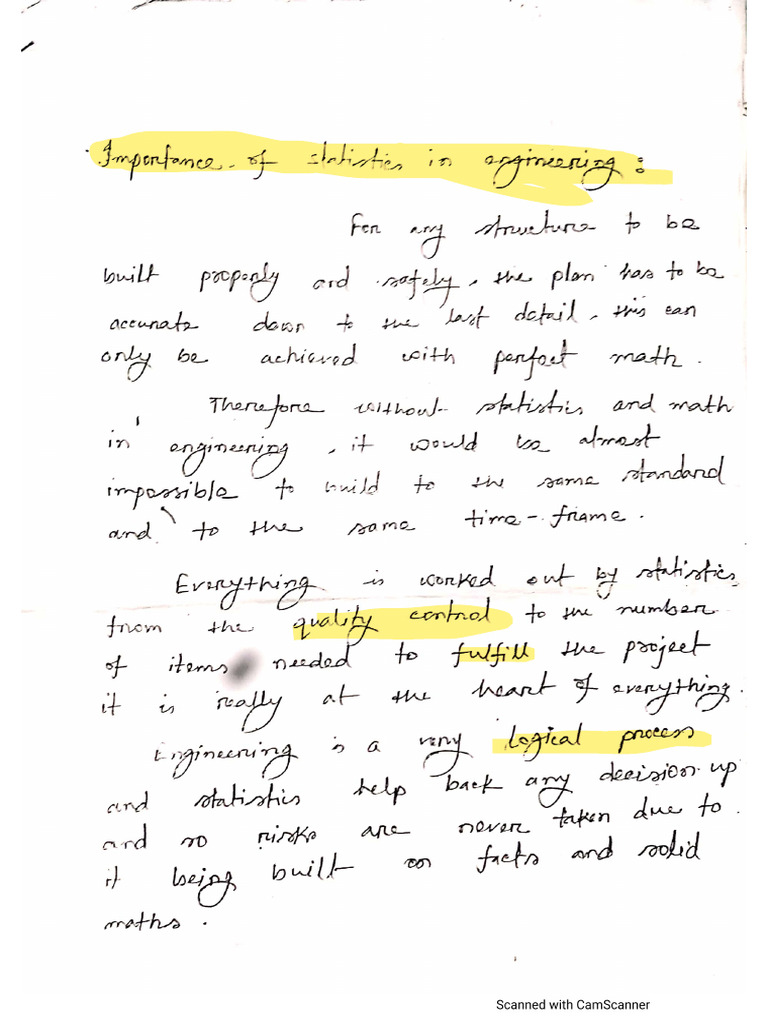 Importance of statistics in engineering :
For any structure to be
built properly and safely, the plan has to be
accurate down to the last detail, this can
only be achieved with perfect math.
Therefore without statistics and math
in engineering, it would be almost
impossible to build to the same standard
and to the same time-frame.
Everything is worked out by statistics,
from the quality control to the number
of items needed to fulfill the project
it is really at the heart of everything.
Engineering is a very logical process
and statistics help back any decision up
and so risks are never taken due to
it being built on facts and solid
maths.
Scanned with CamScanner